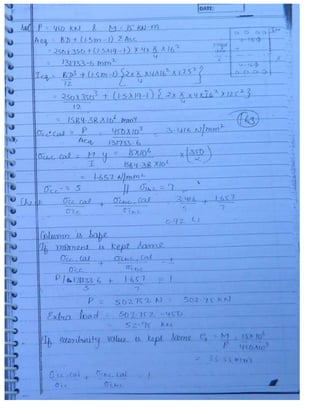 DATE:
P = 450 KN & M = 15 KN-m
Aeq = BD + (1.5m-1) ΣAsc
= 250×350 + (1.5×19-1) × 4 × π/4 × 16²
= mm²
Ieq = BD³/12 + (1.5m-1) {2 × π/4 × 16² × 125²}
= 250×350³/12 + (1.5×19-1) {2 × π/4 × 16² × 125²}
= 1584.38 × 10⁶ mm⁴
σcc cal = P/Aeq = 450×10³ = 3.416 N/mm²
σcbc cal = M/I y = 15×10⁶/1584.38×10⁶ × (350/2)
= 1.657 N/mm²
σcc = 5 // σcbc = 7
σcc cal/σcc + σcbc cal/σcbc = 3.416/5 + 1.657/7
0.92 < 1
Column is safe
If moment is kept same
σcc cal/σcc + σcbc cal/σcbc = 1
+ 1.657/7 = 1
P = 502752 N = 502.75 KN
Extra load = 502.752 - 450
= 52.75 KN
If eccentricity value is kept same e = M/P = 15×10⁶/450×10³
= 33.33 mm
σcc cal/σcc + σcbc cal/σcbc = 1